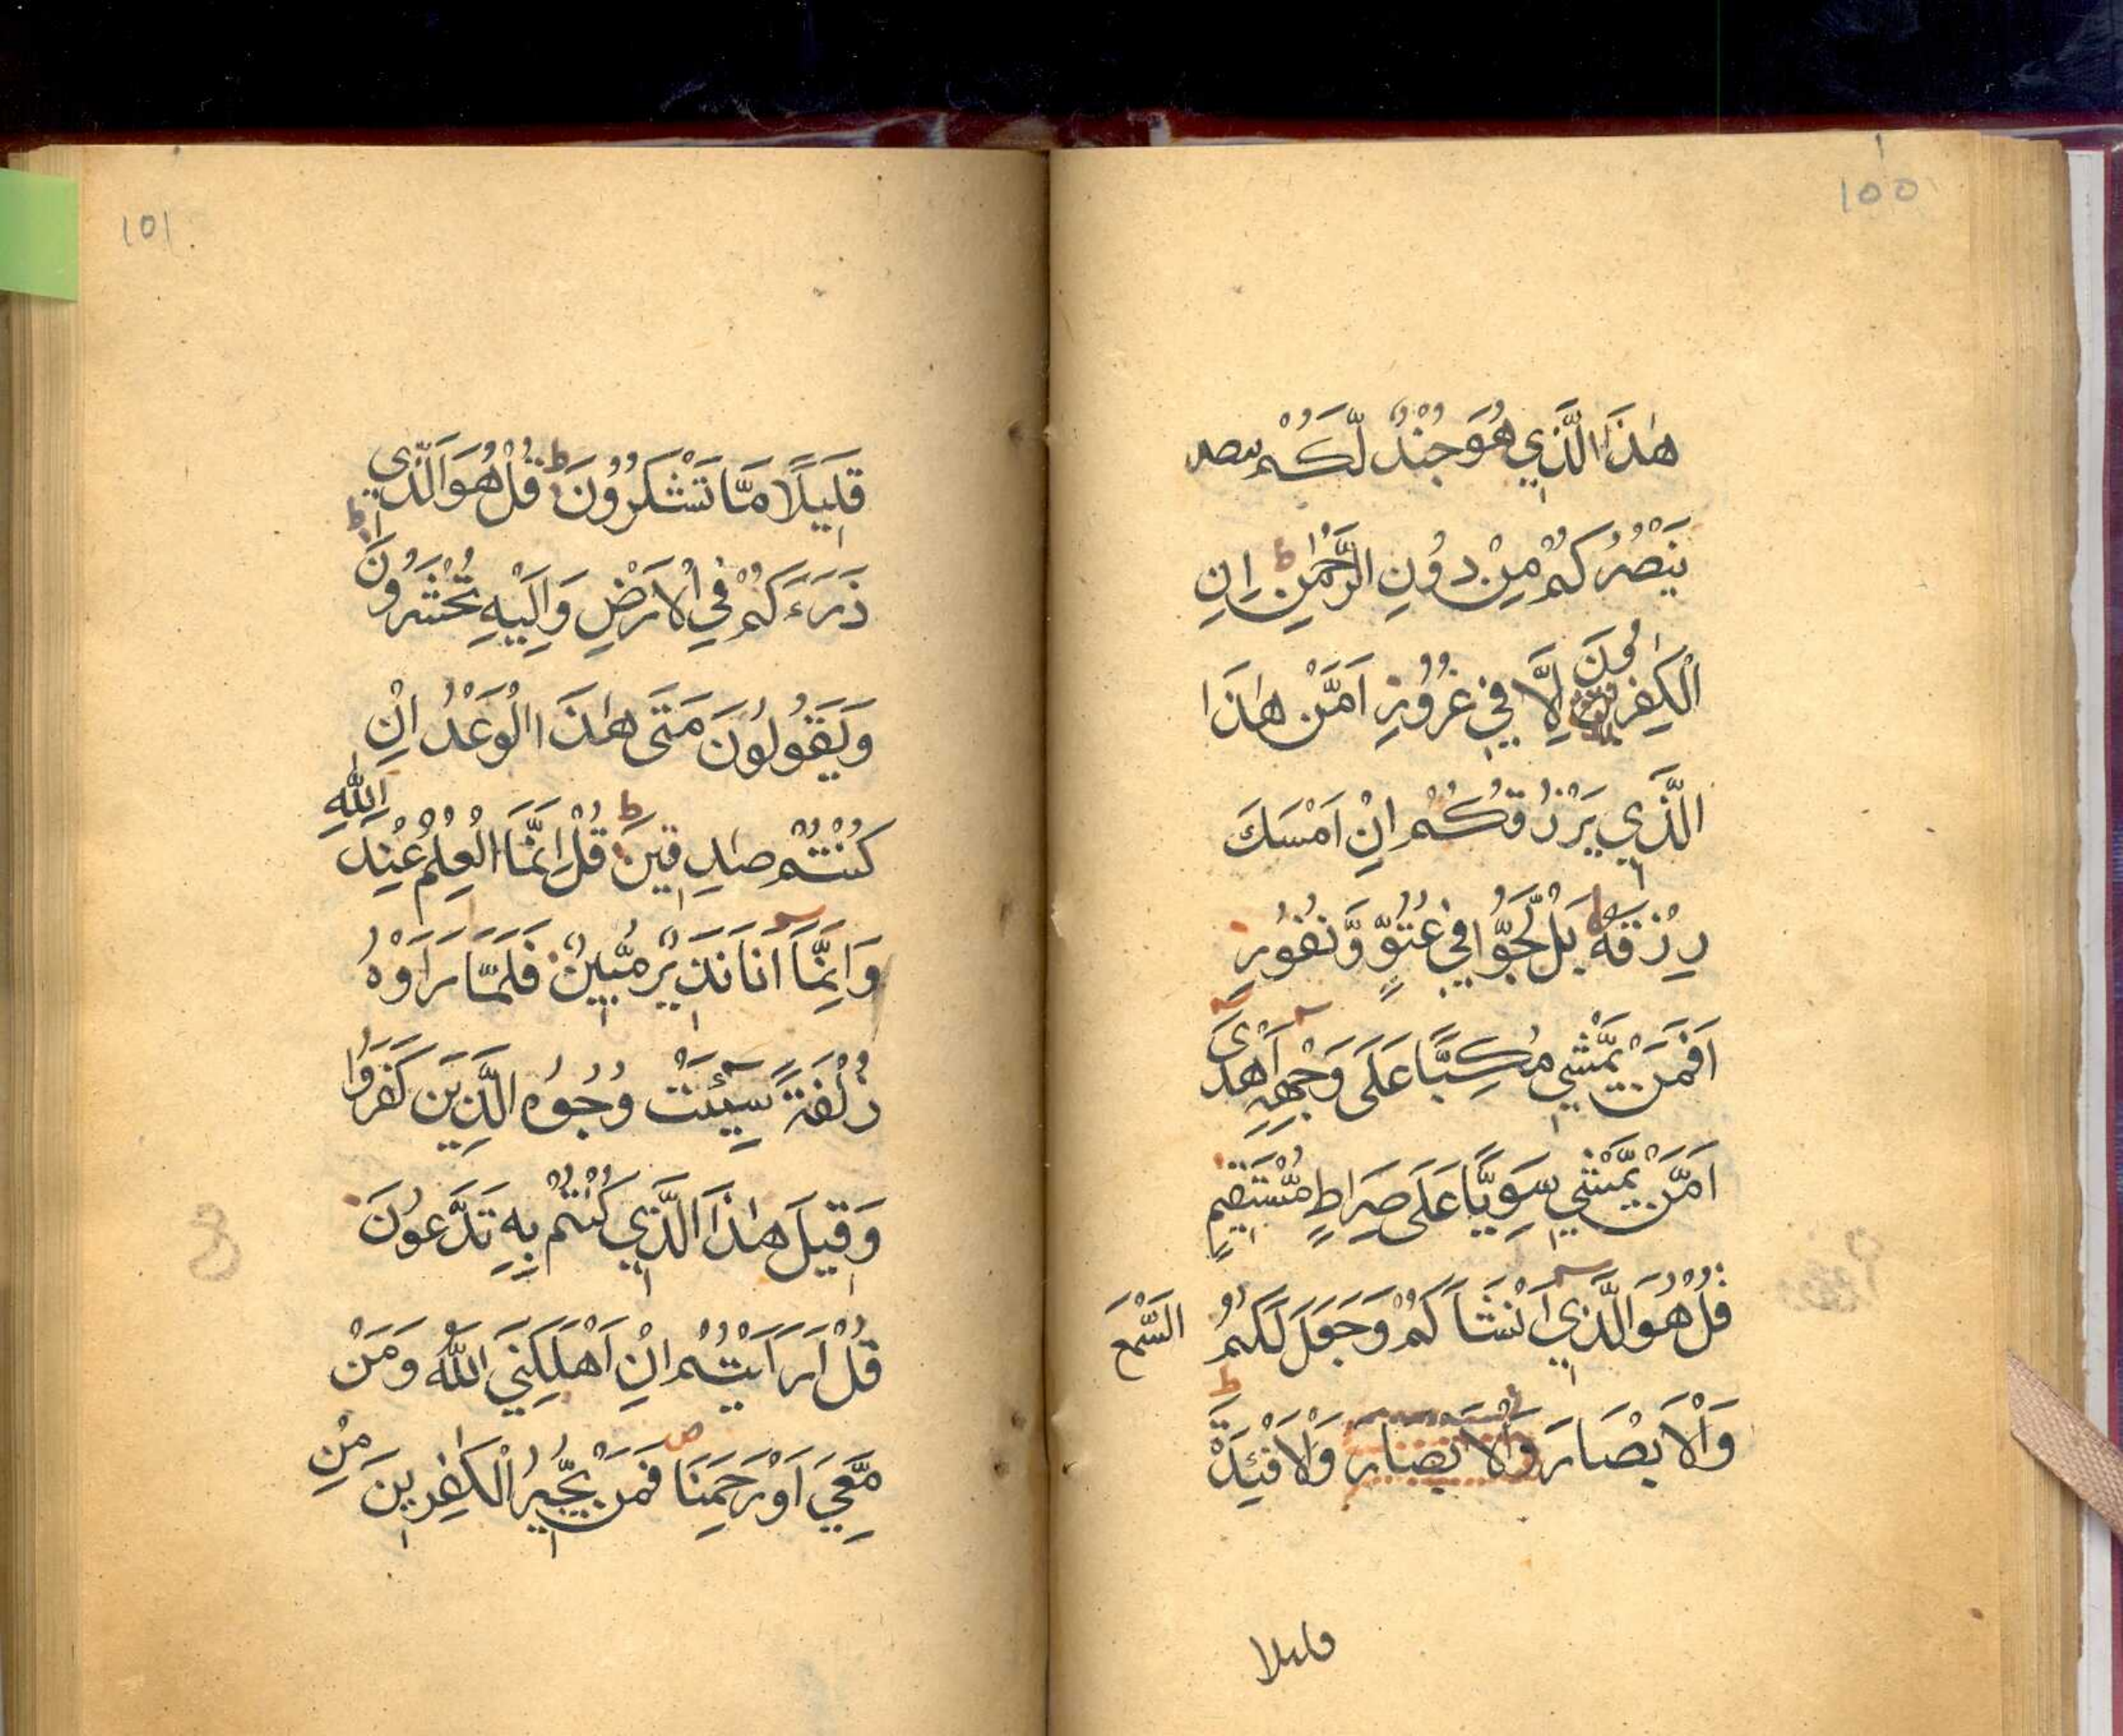 100
هٰذَا الَّذِي هُوَ جُنْدٌ لَّكُمْ ينصر
يَنْصُرُكُمْ مِنْ دُونِ الرَّحْمٰنِ ط اِنِ
الْكٰفِرُونَ اِلَّا فِي غُرُورٍ اَمَّنْ هٰذَا
الَّذِي يَرْزُقُكُمْ اِنْ اَمْسَكَ
رِزْقَهُ بَلْ لَّجُّوا فِي عُتُوٍّ وَّنُفُورٍ
اَفَمَنْ يَّمْشِي مُكِبًّا عَلَى وَجْهِهِ اَهْدَى
اَمَّنْ يَّمْشِي سَوِيًّا عَلَى صِرَاطٍ مُّسْتَقِيمٍ
قُلْ هُوَ الَّذِي اَنْشَاَكُمْ وَجَعَلَ لَكُمُ السَّمْعَ
وَالْاَبْصَارَ وَالْاَبْصَارَ وَالْاَفْئِدَةَ ط
قليلا
101
قَلِيلًا مَّا تَشْكُرُونَ ط قُلْ هُوَ الَّذِي
ذَرَءَكُمْ فِي الْاَرْضِ وَاِلَيْهِ تُحْشَرُونَ ط
وَيَقُولُونَ مَتَى هٰذَا الْوَعْدُ اِنْ
كُنْتُمْ صٰدِقِينَ ط قُلْ اِنَّمَا الْعِلْمُ عِنْدَ اللّٰهِ
وَاِنَّمَا اَنَا نَذِيرٌ مُّبِينٌ فَلَمَّا رَاَوْهُ
زُلْفَةً سِيْئَتْ وُجُوهُ الَّذِينَ كَفَرُوا
وَقِيلَ هٰذَا الَّذِي كُنْتُمْ بِهِ تَدَّعُونَ
قُلْ اَرَاَيْتُمْ اِنْ اَهْلَكَنِيَ اللّٰهُ وَمَنْ
مَّعِيَ اَوْ رَحِمَنَا ص فَمَنْ يُّجِيرُ الْكٰفِرِينَ مِنْ